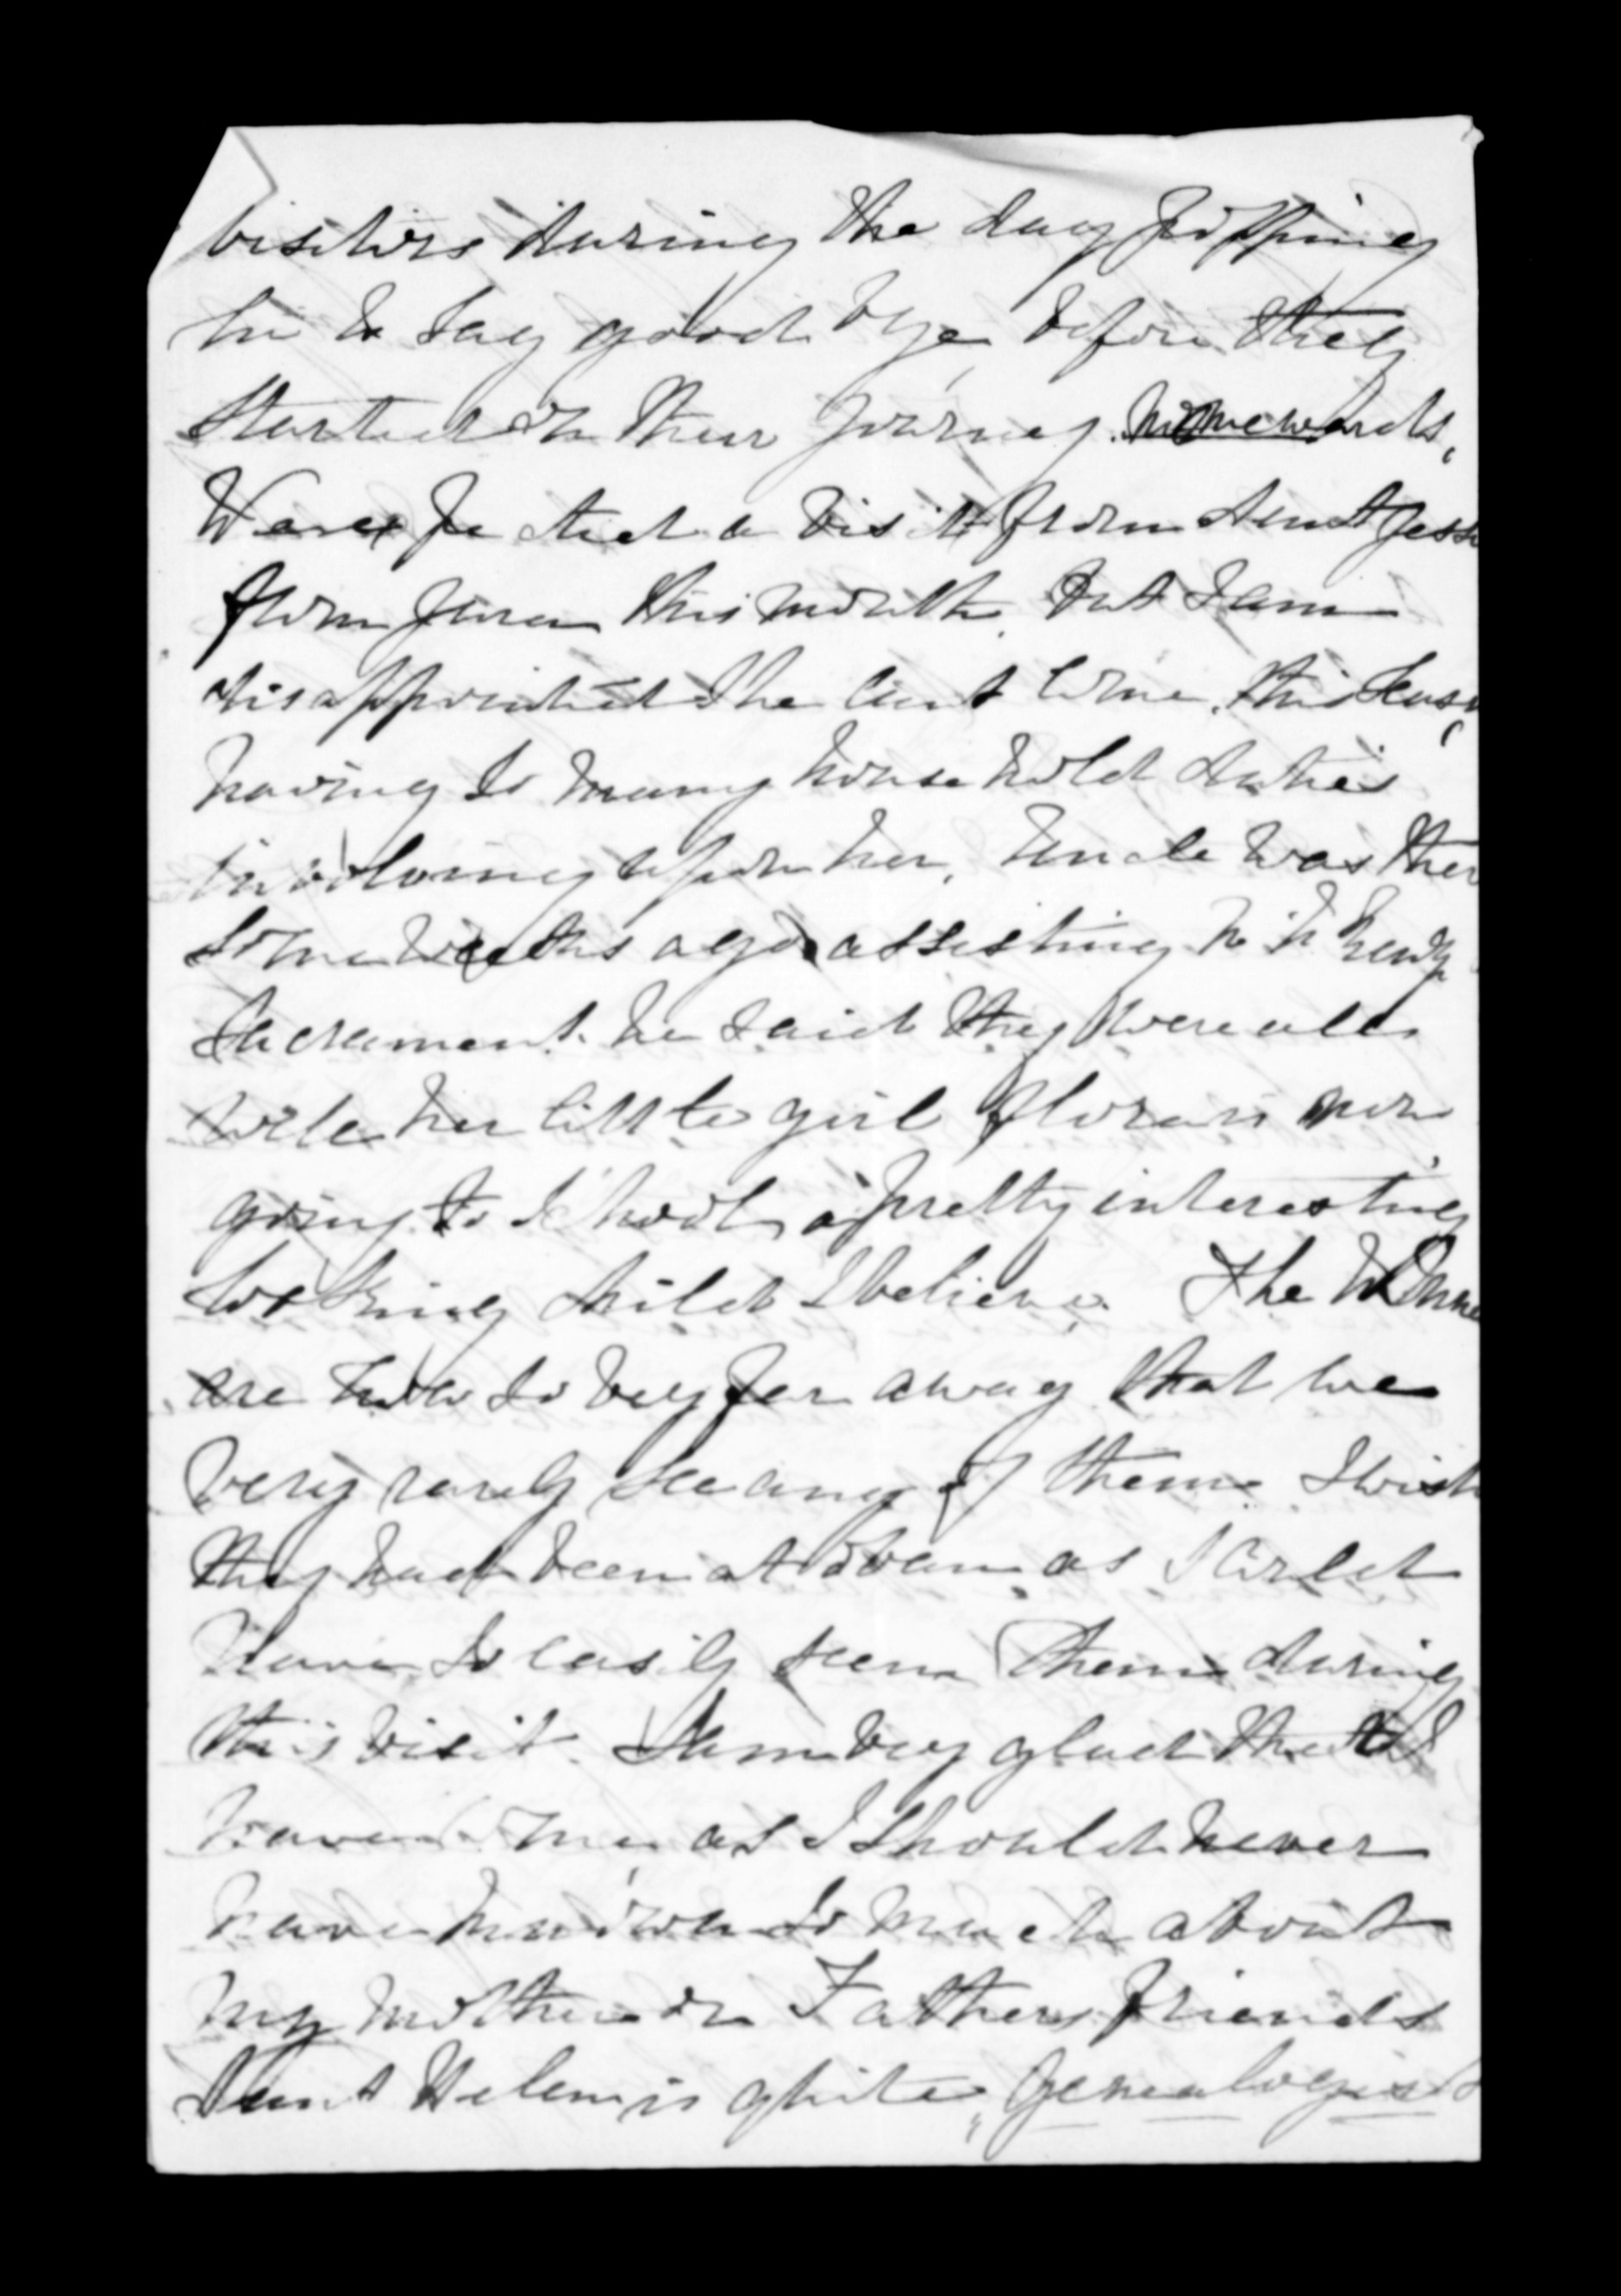 visitors during the day popping
in to say good bye before they
started on their journey homewards.
We expected a visit from Aunt Jess
from Jura this month but I am
disappointed She cant come this Seas
having so many household duties
involving upon her, Uncle was ther
some weeks ago assisting at
Sacrament he said they were all
well her little girl Flora is now
going to School a pretty interesting
looking child I believe. The
are now so very far away that we
very rarely see any of them I wish
they had been at Oban as I could
have so easily seen them during
this visit. I am very glad that I
have come as I should never
have known so much about
my mother or Fathers friends
Aunt Helen is quite "Genealogist